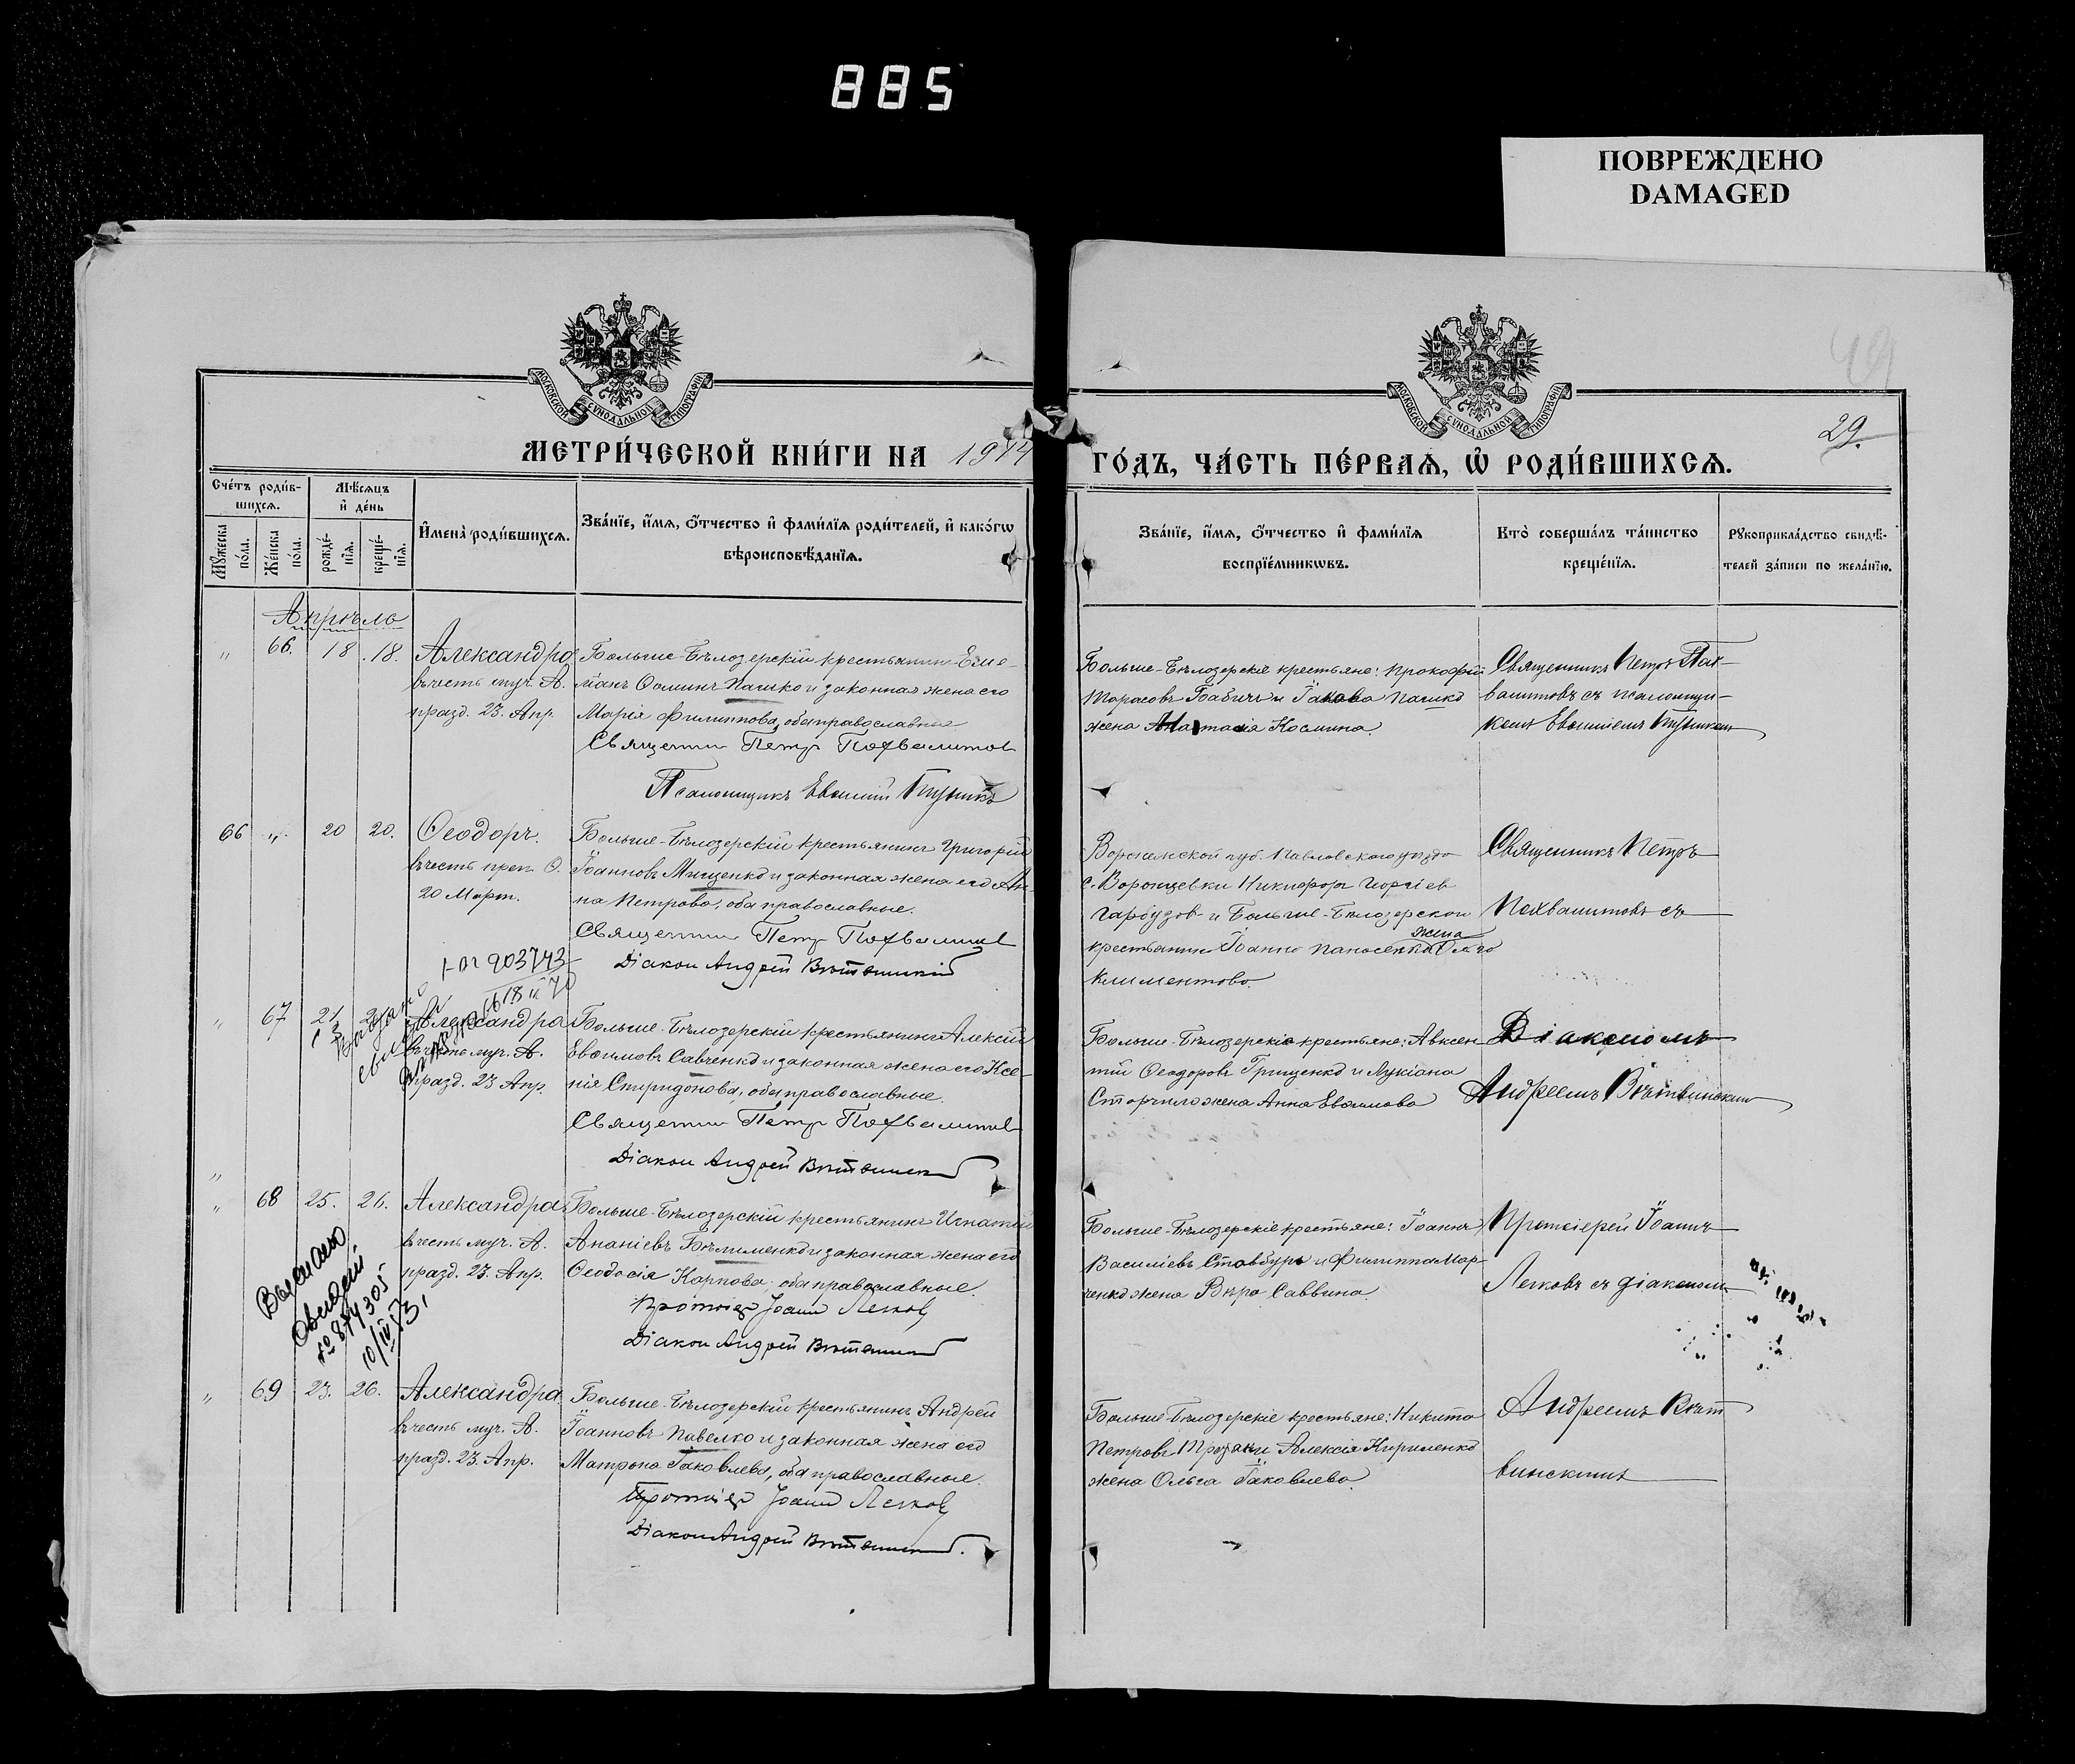 885
ПОВРЕЖДЕНО
DAMAGED
МОСКОВСКОЙ СУНОДАЛЬНОЙ ТИПОГРАФІИ
МОСКОВСКОЙ СУНОДАЛЬНОЙ ТИПОГРАФІИ
29.
МЕТРИ́ЧЕСКОЙ КНИ́ГИ НА 1914
ГО́ДЪ, ЧА́СТЬ ПЕ́РВАѦ, Ѡ҆ РОДИ́ВШИХСѦ.
Сче́тъ роди́в-
шихсѧ.
Мѣ́сѧцъ
и҆ де́нь
Мꙋ́жеска по́ла.
Же́нска по́ла.
рожде́-нїѧ.
креще́-нїѧ.
И҆мена̀ роди́вшихсѧ.
Зва́нїе, и҆́мѧ, ѻ҆́тчество и҆ фами́лїѧ роди́телей, и҆ како́гѡ
вѣроисповѣ́данїѧ.
Зва́нїе, и҆́мѧ, ѻ҆́тчество и҆ фами́лїѧ
воспрїе́мникѡвъ.
Кто̀ соверша́лъ та́инство
креще́нїѧ.
Рꙋкоприкла́дство свидѣ́-
телей за́писи по жела́нїю.
Апрѣль
" 66. 18 18. Александра
въ честь муч. А.
празд. 23. Апр.
Больше-Бѣлозерскій крестьянинъ Еме-
льянъ Ѳоминъ Пашко и законная жена его
Марія Филиппова, оба православные
Священник Петр Похвалитов
Псаломщикъ Евѳимій
Больше-Бѣлозерскіе крестьяне: Прокофій
Тарасовъ Бабичъ и Іакова Пашко
жена Анастасія Космина
Священникъ Петръ Пох-
валитовъ съ псаломщи-
комъ Евѳиміемъ
66 " 20 20. Ѳеодоръ.
въ честь преп. Ѳ.
20 Март.
Больше-Бѣлозерскій крестьянинъ Григорій
Іоанновъ Мищенко и законная жена его Ан-
на Петрова, оба православные.
Священник Петр Похвалитов
Діакон Андрей Вѣтвинскій
Воронежской губ. Павловского уѣзда
с. Воронцовки Никифоръ Георгіев
Гарбузов и Больше-Бѣлозерской
жена
крестьянин Іоанна Панасенка Ольга
Климентова
Священникъ Петръ
Похвалитовъ съ
903743
18 IX 70
" 67 21. Александра
въ честь муч. А.
празд. 23 Апр.
Больше-Бѣлозерскій крестьянинъ Алексій
Евѳимовъ Савченко и законная жена его Ксе-
нія Спиридонова, оба православные.
Священник Петр Похвалитов
Діакон Андрей Вѣтвинскій
Больше-Бѣлозерскіе крестьяне: Авксен-
тій Ѳеодоровъ Грищенко и Лукіана
Сторчило жена Анна Евѳимова
Діакономъ
Андреемъ Вѣтвинскимъ
" 68 25. 26. Александра
въ честь муч. А.
празд. 23. Апр.
Больше-Бѣлозерскій крестьянинъ Игнатій
Ананіевъ Бѣлименко и законная жена его
Ѳеодосія Карпова, оба православные.
Протоіер Іоанн Легков
Діакон Андрей Вѣтвинскій
Больше-Бѣлозерскіе крестьяне: Іоаннъ
Василіевъ Стовбуръ и Филиппа Мар-
ченко жена Вѣра Саввина.
Протоіерей Іоаннъ
Легковъ съ діакономъ
Выслано
№ 874305
10/IV 53,
" 69 23. 26. Александра
въ честь муч. А.
празд. 23. Апр.
Больше-Бѣлозерскій крестьянинъ Андрей
Іоанновъ Павелко и законная жена его
Матрона Іаковлева, оба православные.
Протоіер Іоанн Легков
Діакон Андрей Вѣтвинскій.
Больше-Бѣлозерскіе крестьяне: Никита
Петровъ и Алексія Кириленко
жена Ольга Іаковлева.
Андреемъ Вѣт-
винскимъ